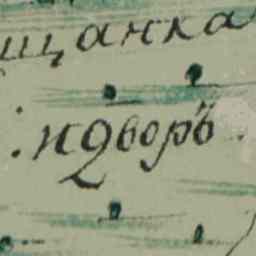 щанка
идворъ